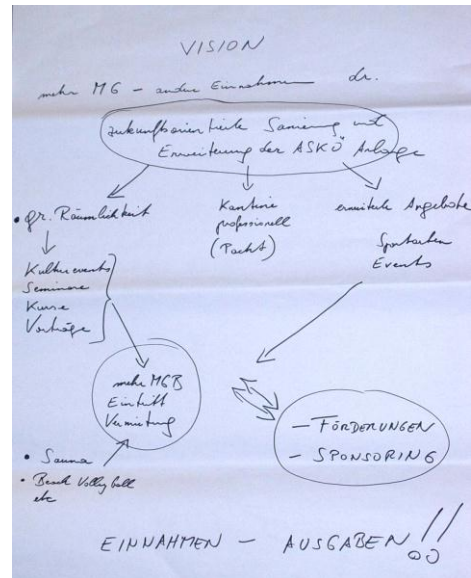 VISION
mehr MG – andere Einnahmen dr.
zukunftsorientierte Sanierung mit
Erweiterung der ASKÖ Anlage
• gr. Räumlichkeit
Kulturevents
Seminare
Kurse
Vorträge
Kantine
professionell
(Pacht)
erweiterte Angebote
Sportarten
Events
mehr MGB
Eintritt
Vermietung
• Sauna
• Beach Volleyball
etc
– FÖRDERUNGEN
– SPONSORING
EINNAHMEN – AUSGABEN !!